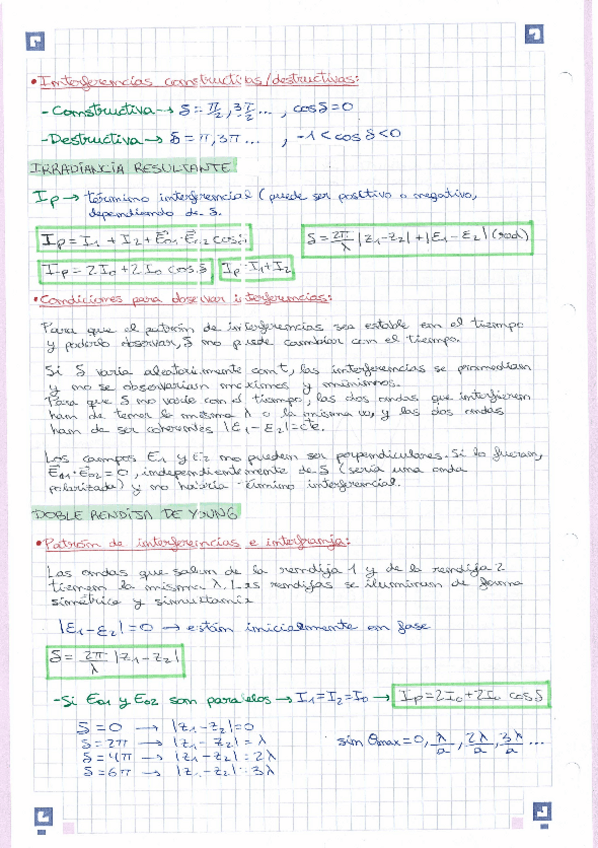 • Interferencias constructivas/destructivas:
- Constructiva → δ = π/2, 3π/2 ... , cosδ = 0
- Destructiva → δ = π, 3π ... , -1 < cos δ < 0
IRRADIANCIA RESULTANTE
Ip → término interferencial (puede ser positivo o negativo,
dependiendo de δ.
Ip = I1 + I2 + E⃗01 · E⃗02 cos
δ = 2π/λ |z1 - z2| + |ε1 - ε2| (rad)
Ip = 2I0 + 2I0 cos δ
Ip = I1 + I2
• Condiciones para observar interferencias:
Para que el patrón de interferencias sea estable en el tiempo
y poderlo observar, δ no puede cambiar con el tiempo.
Si δ varía aleatoriamente con t, las interferencias se promedian
y no se observarían máximos y mínimos.
Para que δ no varíe con el tiempo, las dos ondas que interfieren
han de tener la misma λ o la misma w, y las dos ondas
han de ser coherentes |ε1 - ε2| = cte.
Los campos E1 y E2 no pueden ser perpendiculares. Si lo fueran,
E⃗01 · E⃗02 = 0, independientemente de δ (sería una onda
polarizada) y no habría término interferencial.
DOBLE RENDIJA DE YOUNG
• Patrón de interferencias e interfranja:
Las ondas que salen de la rendija 1 y de la rendija 2
tienen la misma λ. Las rendijas se iluminan de forma
simétrica y
|ε1 - ε2| = 0 → están inicialmente en fase
δ = 2π/λ |z1 - z2|
- Si E01 y E02 son paralelos → I1 = I2 = I0 → Ip = 2I0 + 2I0 cos δ
δ = 0 → |z1 - z2| = 0
δ = 2π → |z1 - z2| = λ
sin θmax = 0, λ/a, 2λ/a, 3λ/a ...
δ = 4π → |z1 - z2| = 2λ
δ = 6π → |z1 - z2| = 3λ